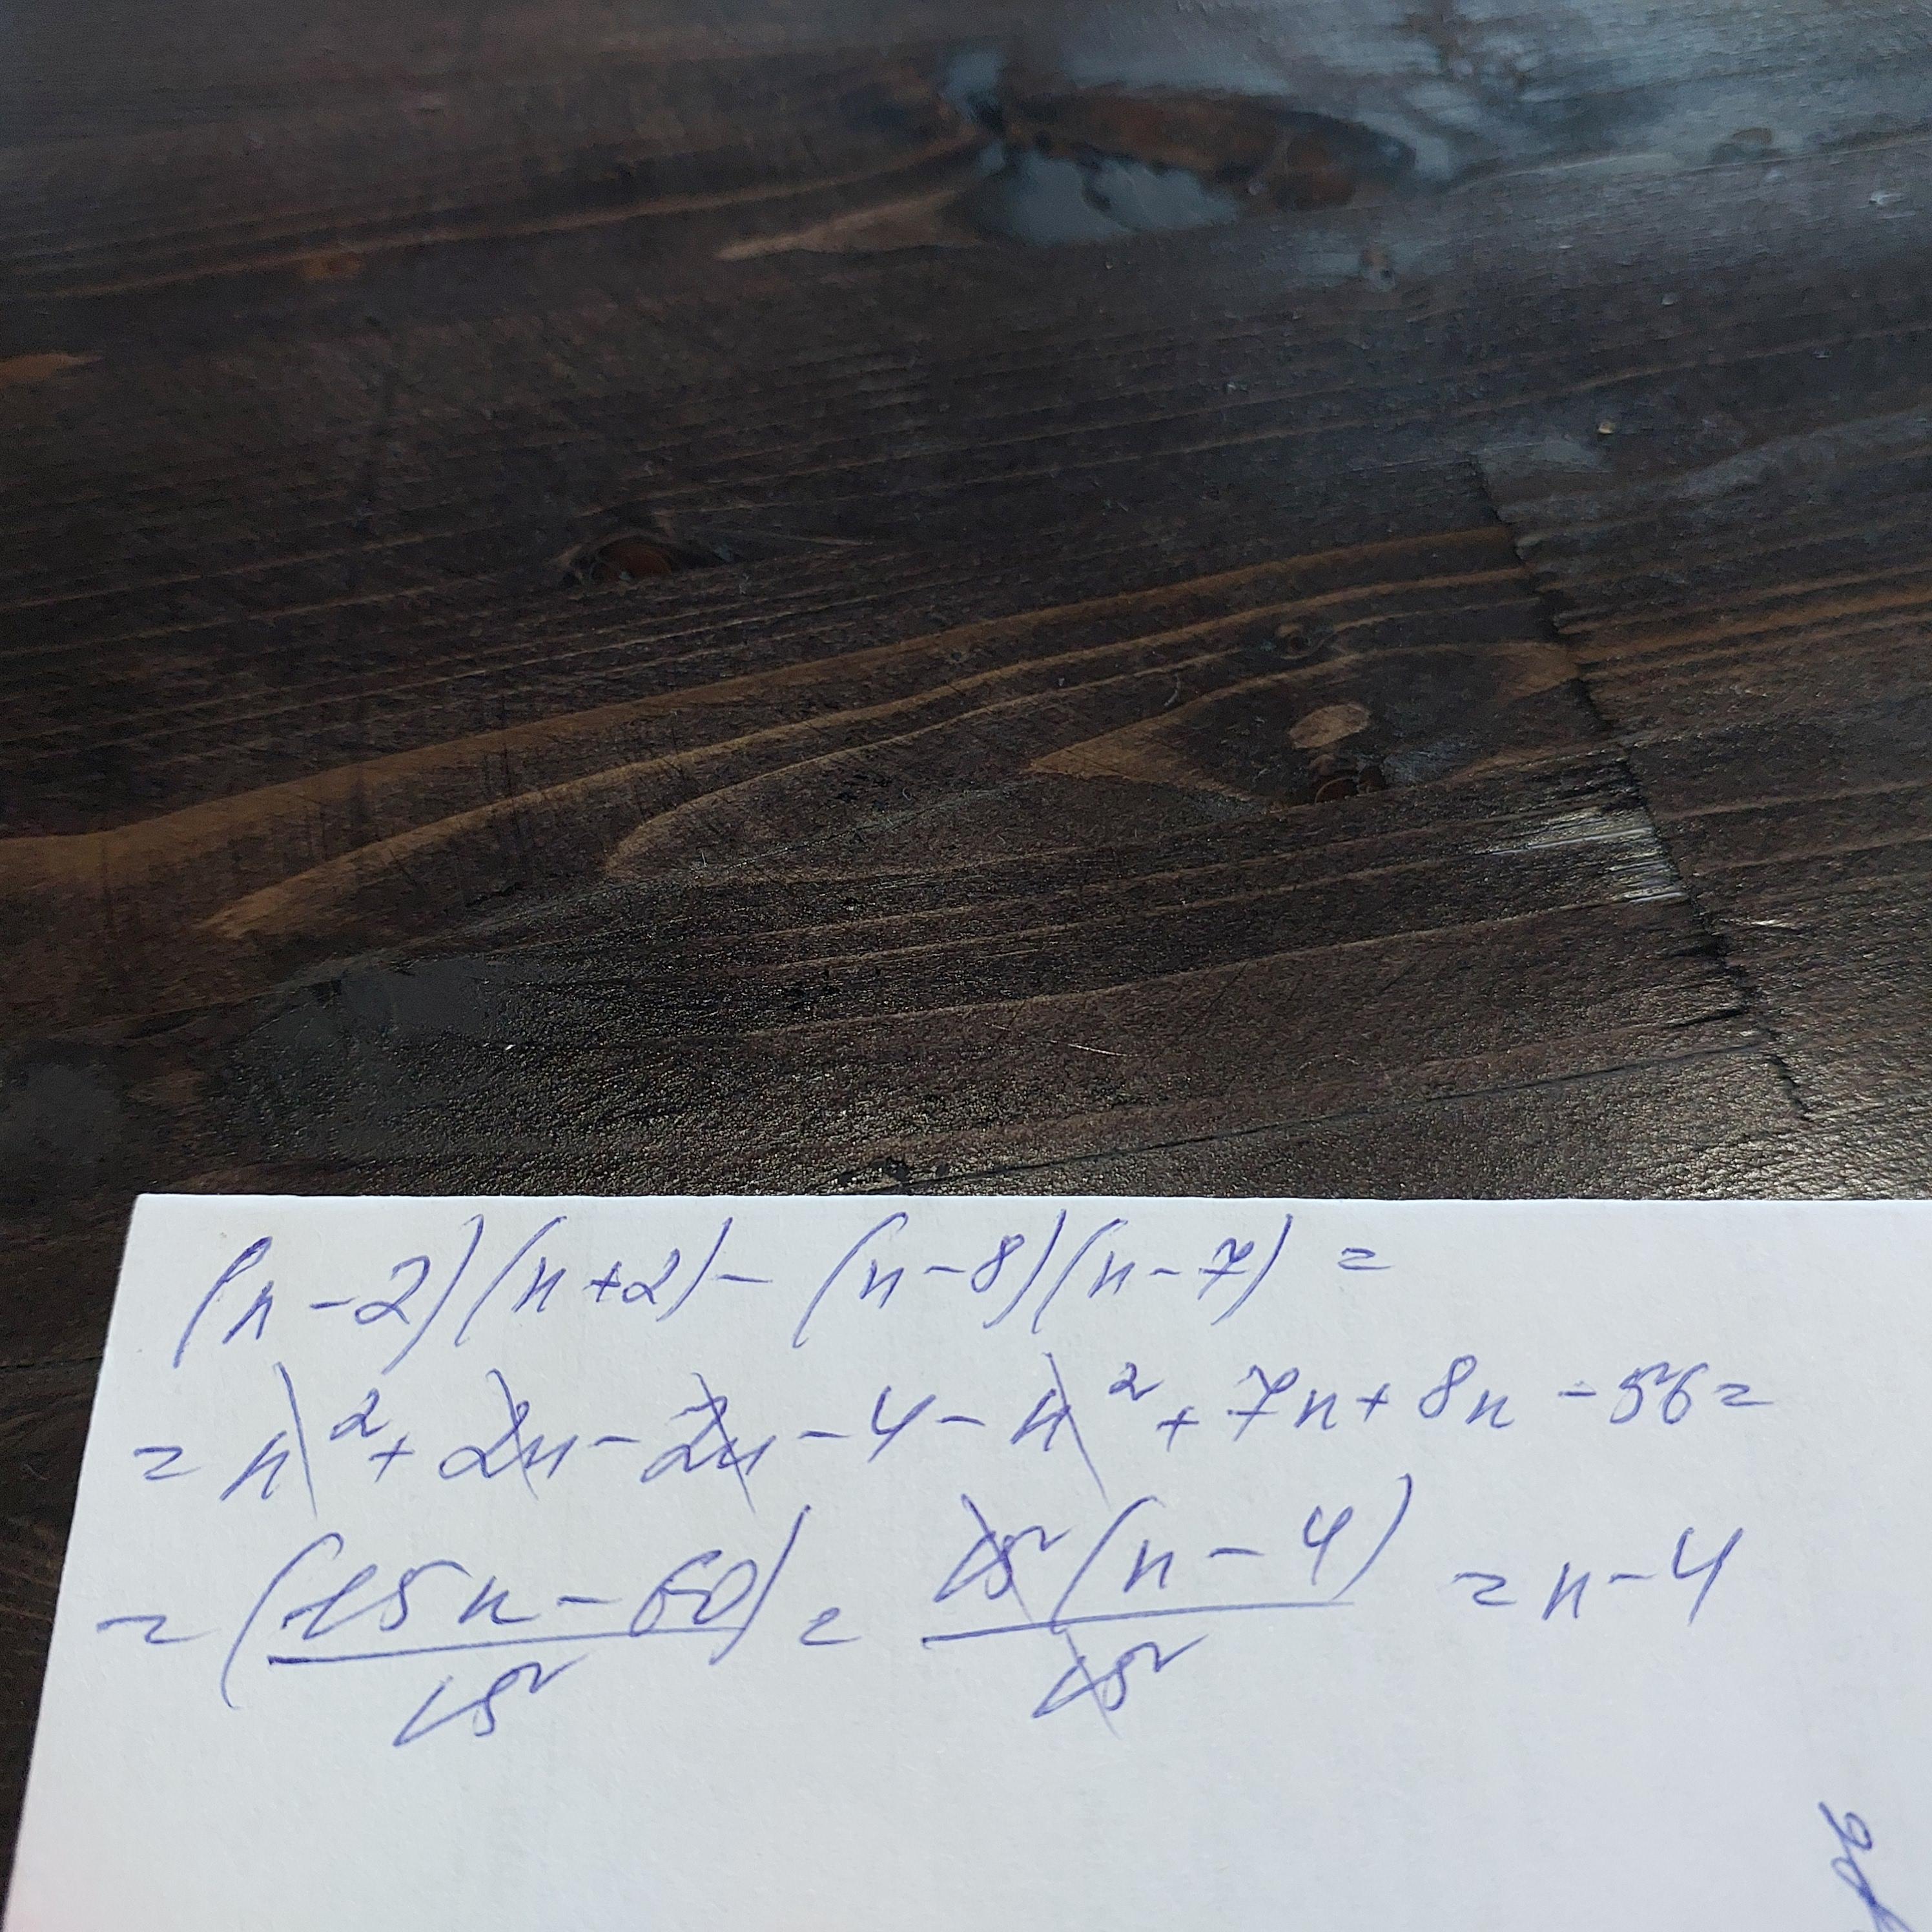 (n-2)(n+2)-(n-8)(n-7)=
=n²+2n-2n-4-n²+7n+8n-56=
=(15n-60)/15=15(n-4)/15=n-4